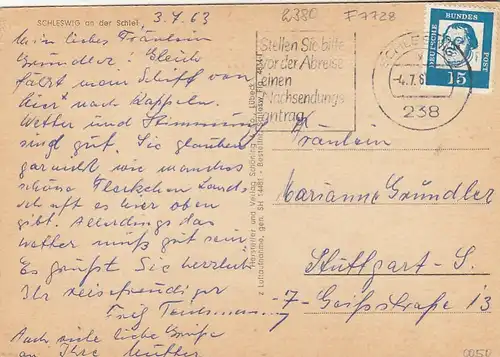 SCHLESWIG an der Schlei,
3.7.63
2380
F 7728
Mein liebes Fräulein
Gründler! Gleich
fährt mein Schiff von
hier nach Kappeln.
Wetter und Stimmung
sind gut. Sie glauben
gar nicht wie manches
schöne Fleckchen Land-
schaft es hier oben
gibt. Allerdings das
Wetter muß gut sein.
Es grüßt Sie herzlich
Ihr reisefreudiger
Auch viele liebe Grüße
an Ihre Mutter
Hersteller und Verlag
Stellen Sie bitte
vor der Abreise
einen
Nachsendungs
antrag
SCHLESWIG
-4.7.6
238
DEUTSCHE BUNDES POST
15
Fräulein
Marianne Gründler
Stuttgart-S.
-7- Geißstraße 13